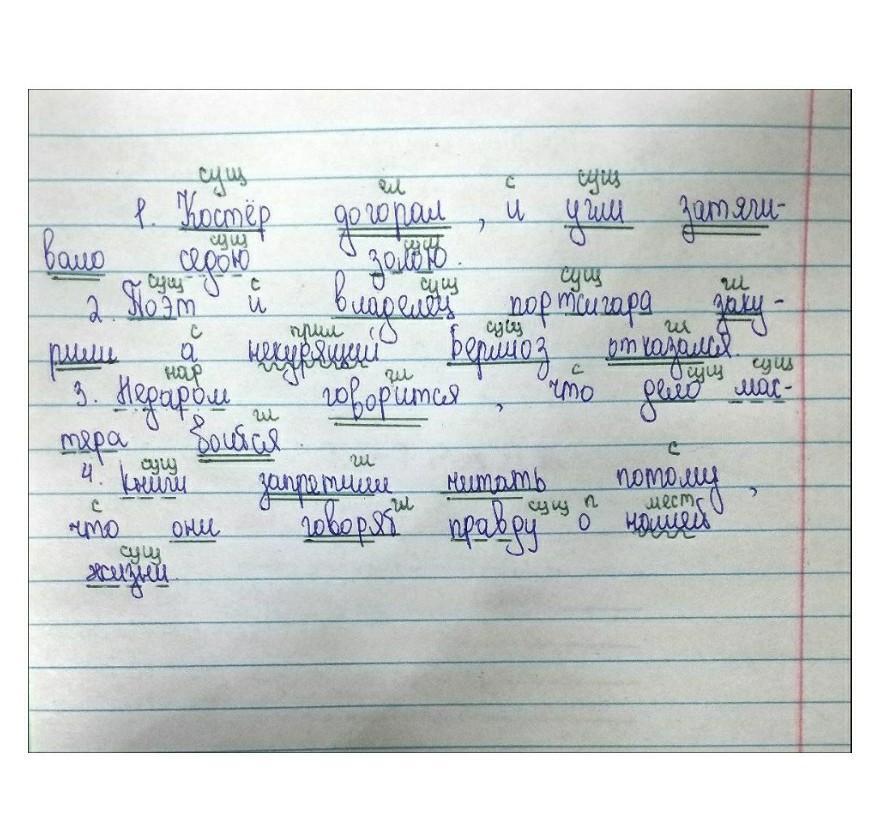 сущ гл с сущ
1. Костёр догорал, и угли затяги-
сущ сущ
вало седою золою.
сущ с сущ сущ гл
2. Поэт и владелец портсигара заку-
с прил сущ гл
рили а некурящий Берлиоз отказался.
нар гл с сущ сущ
3. Недаром говорится, что дело мас-
гл
тера боится.
сущ гл с
4. Книги запретили читать потому,
с гл сущ п мест
что они говорят правду о нашей
сущ
жизни.